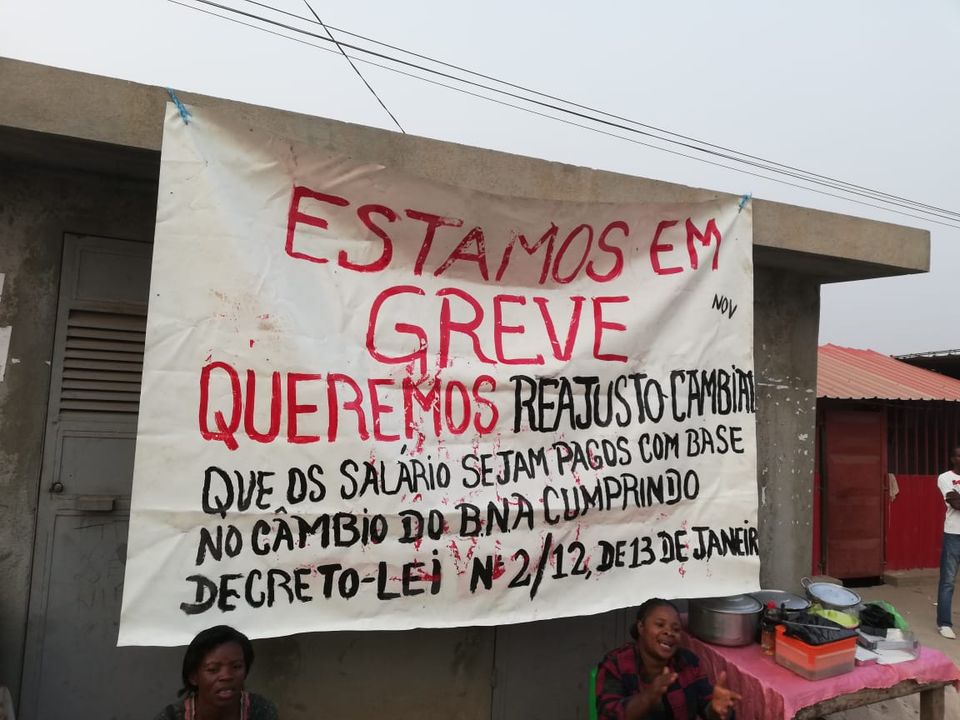 ESTAMOS EM
NOV
GREVE
QUEREMOS REAJUSTO CAMBIAL
QUE OS SALÁRIO SEJAM PAGOS COM BASE
NO CÂMBIO DO B.N.A CUMPRINDO
DECRETO-LEI Nº 2/12, DE 13 DE JANEIR